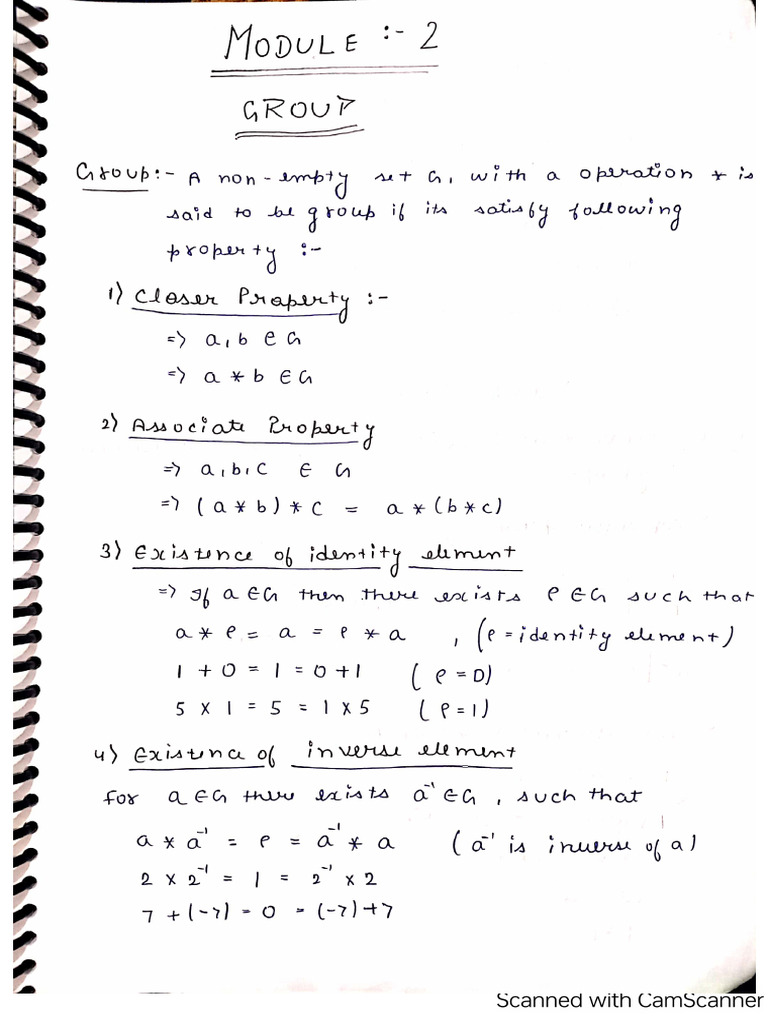 MODULE :- 2
GROUP
Group:- A non-empty set G, with a operation * is
said to be group if its satisfy following
property :-
1) Closer Property :-
=> a, b ∈ G
=> a * b ∈ G
2) Associate Property
=> a, b, c ∈ G
=> (a * b) * c = a * (b * c)
3) Existence of identity element
=> If a ∈ G then there exists e ∈ G such that
a * e = a = e * a , (e = identity element)
1 + 0 = 1 = 0 + 1 (e = 0)
5 × 1 = 5 = 1 × 5 (e = 1)
4) Existence of inverse element
For a ∈ G there exists a⁻¹ ∈ G, such that
a * a⁻¹ = e = a⁻¹ * a (a⁻¹ is inverse of a)
2 × 2⁻¹ = 1 = 2⁻¹ × 2
7 + (-7) = 0 = (-7) + 7
Scanned with CamScanner